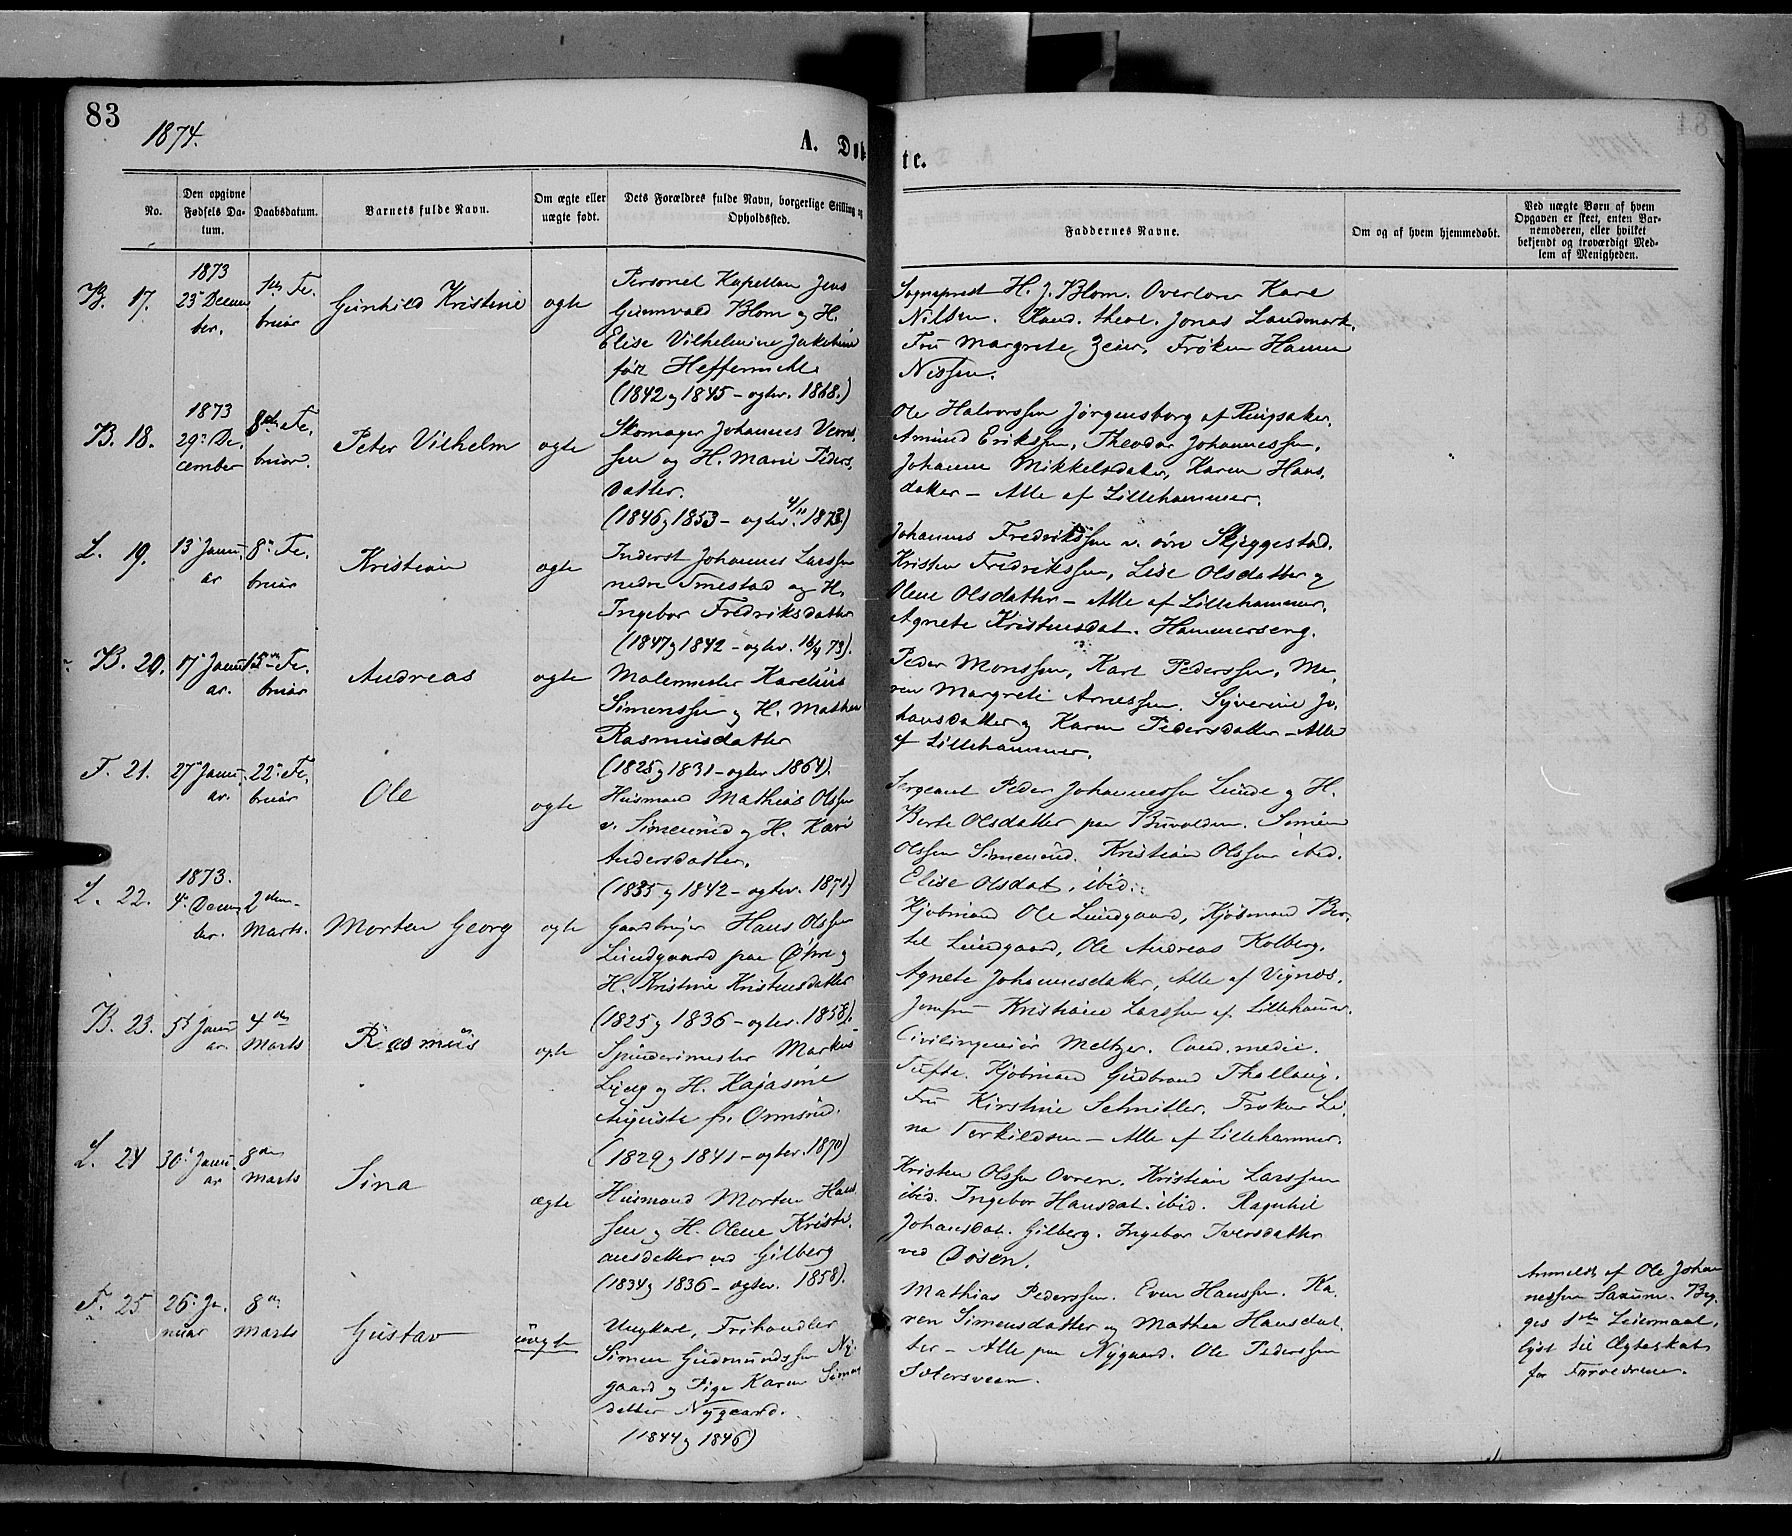 83
1874.
A. Døb
te.
No.
Den opgivne Fødsels Da-
tum.
Daabsdatum.
Barnets fulde Navn.
Om ægte eller
uægte født.
Dets Forældres fulde Navn, borgerlige Stilling og
Opholdssted.
Faddernes Navne.
Om og af hvem hjemmedøbt.
Ved uægte Børn af hvem
Opgaven er skeet, enten Bar-
nemoderen, eller hvilket
bekjendt og troværdigt Med-
lem af Menigheden.
B. 17.
1873
23 Decem
ber.
1ste Fe.
bruar
Gunhild Kristine
ægte
Personel Kapellan Jens
Gunnvald Blom og H.
Elise Vilhelmine Jakobine
født Heffermehl.
(1842 og 1845 - ægtev. 1868.)
Sogneprest H. J. Blom. Overlærer Karl
Nilsen. Kand. theol. Jonas Landmark.
Fru Margrete Zeier, Frøken Hanna
Nissen.
B. 18.
1873
29 De,
cember
8de Fe,
bruar.
Peter Vilhelm
ægte
Skomager Johannes
sen og H. Marie Peders,
datter.
(1846 og 1853 - ægtev. 4/11 1873)
Ole Halvorssen Jørgensborg af Ringsaker.
Amund Erikssen, Theodor Johannessen,
Johanne Mikkelsdatter, Karen Hans,
datter - Alle af Lillehammer.
L. 19.
13 Janu,
ar
8n Fe,
bruar
Kristian
ægte
Inderst Johannes Larssen
nedre Smestad og H.
Ingebor Fredriksdatter
(1847 og 1842 - ægtev. 16/4 73).
Johannes Fredrikssen v. øvre Skjeggestad.
Kristen Fredrikssen, Lise Olsdatter og
Olene Olsdatter - Alle af Lillehammer.
Agnete Kristensdat. Hammerseng.
B. 20.
17 Janu
ar.
15n Fe,
bruar
Andreas
ægte
Malermester Karelius
Simenssen og H. Mathea
Rasmusdatter
(1825 og 1831 - ægtev. 1864).
Peder Monssen, Karl Pederssen, Ma,
ren Margrete Arnessen. Syverine Jo,
hansdatter og Karen Pedersdatter - Alle
af Lillehammer.
F. 21.
27 Janu.
ar.
22n Fe,
bruar
Ole
ægte
Husmand Mathias Olssen
v. Simenrud og H. Kari
Andersdatter.
(1835 og 1842 - ægtev. 1871)
Sergeant Peder Johannessen Lunde og H.
Berte Olsdatter paa Buvolden. Simen
Olssen Simenrud. Kristian Olssen ibid.
Elise Olsdat. ibid.
L. 22.
1873.
4 Decem
ber.
2den
Marts.
Morten Georg
ægte
Gaardbruger Hans Olssen
Lundgaard paa Øhre og
H. Kristine Kristensdatter
(1825 og 1836 - ægtev. 1858).
Kjøbmand Ole Lundgaard, Kjøbmand Ber,
tel Lundgaard, Ole Andreas Kolberg.
Agnete Johannesdatter, Alle af Vignæs.
Jomfru Kristiane Larssen af Lillehammer.
B. 23.
5t Janu
ar.
4de
Marts
Rasmus
ægte
Spinderimester Markus
og H. Kajasine
Auguste f. Ormsrud.
(1829 og 1841 - ægtev. 1870)
Civilingeniør Meltzer. Cand. medic.
Tufte. Kjøbmand Gudbrand Thallaug.
Fru Kirstine Schnitler. Frøken Li,
na Torkildsen - Alle af Lillehammer.
L. 24
30 Janu.
ar
8de
Marts
Sina
ægte
Husmand Morten Hans
sen og H. Olene Kristi.
ansdatter ved Gilberg
(1834 og 1836 - ægtev. 1858).
Kristen Olssen Ovren. Kristian Larssen
ibid. Ingebor Hansdat. ibid. Ragnhil
Johansdat. Gilberg. Ingebor Iversdatter
ved Døsen.
F. 25
26 Ja.
nuar
8de
Marts
Gustav
uægte
Ungkarl, Frihandler
Simen Gudmundssen Ny,
gaard og Pige Karen Simens
datter Nygaard.
(1844 og 1846)
Mathias Pederssen. Even Hanssen. Ka,
ren Simensdatter og Mathea Hansdat.
ter - Alle paa Nygaard. Ole Pederssen
Anmeldt af Ole Johan
nessen Saxum. Beg.
ges 1ste Leiermaal.
lyst til Ægteskab
for Forældrene.